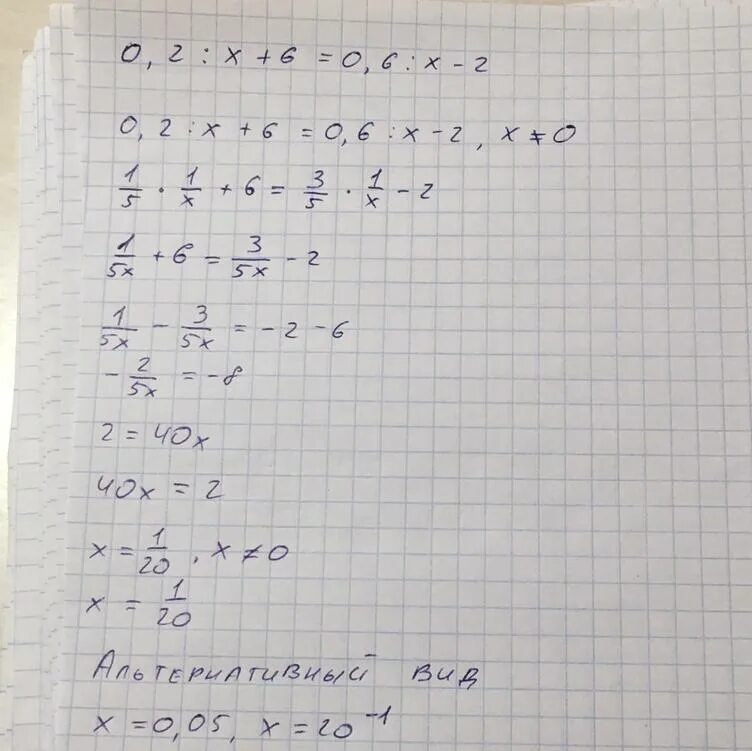 0,2 : x + 6 = 0,6 : x - 2
0,2 : x + 6 = 0,6 : x - 2, x ≠ 0
1/5 · 1/x + 6 = 3/5 · 1/x - 2
1/5x + 6 = 3/5x - 2
1/5x - 3/5x = -2 - 6
- 2/5x = -8
2 = 40x
40x = 2
x = 1/20, x ≠ 0
x = 1/20
Альтернативный вид
x = 0,05, x = 20⁻¹